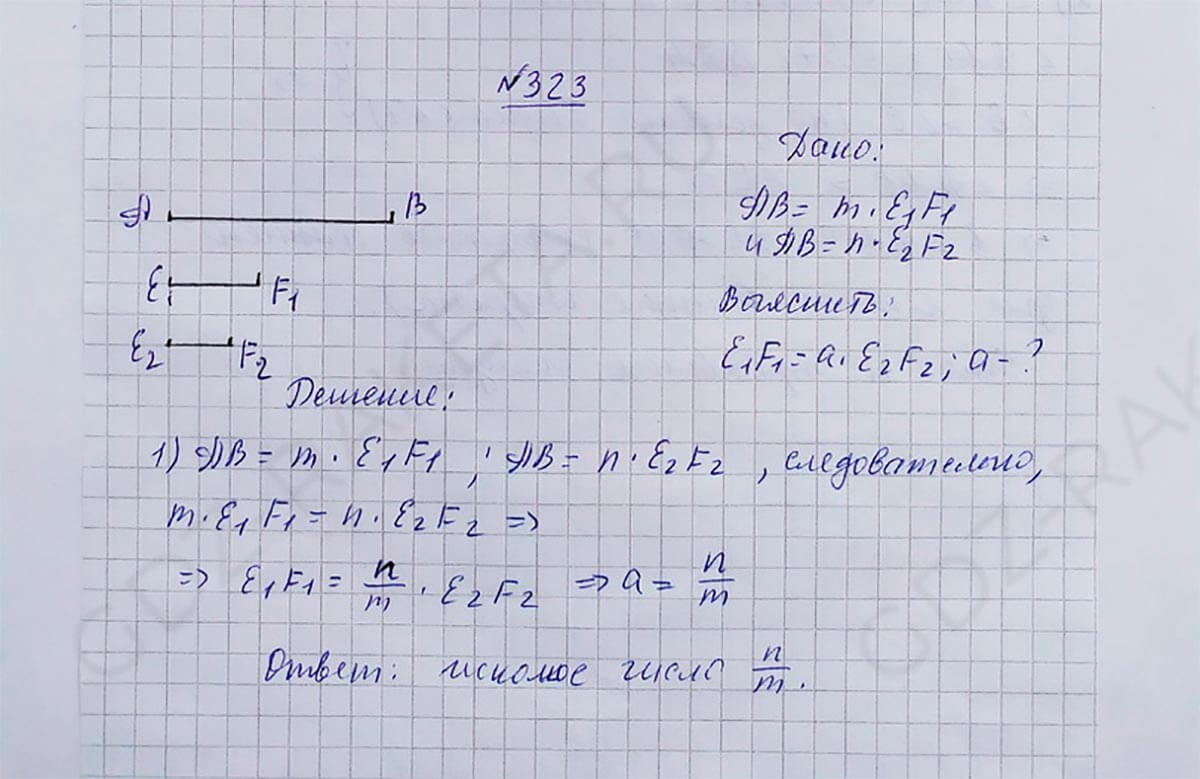 №323
Дано:
AB = m · E₁F₁
и AB = n · E₂F₂
Выяснить:
E₁F₁ = a · E₂F₂; a - ?
A B
E₁ F₁
E₂ F₂
Решение:
1) AB = m · E₁F₁ ; AB = n · E₂F₂ , следовательно,
m · E₁F₁ = n · E₂F₂ =>
=> E₁F₁ = n/m · E₂F₂ => a = n/m
Ответ: искомое число n/m.